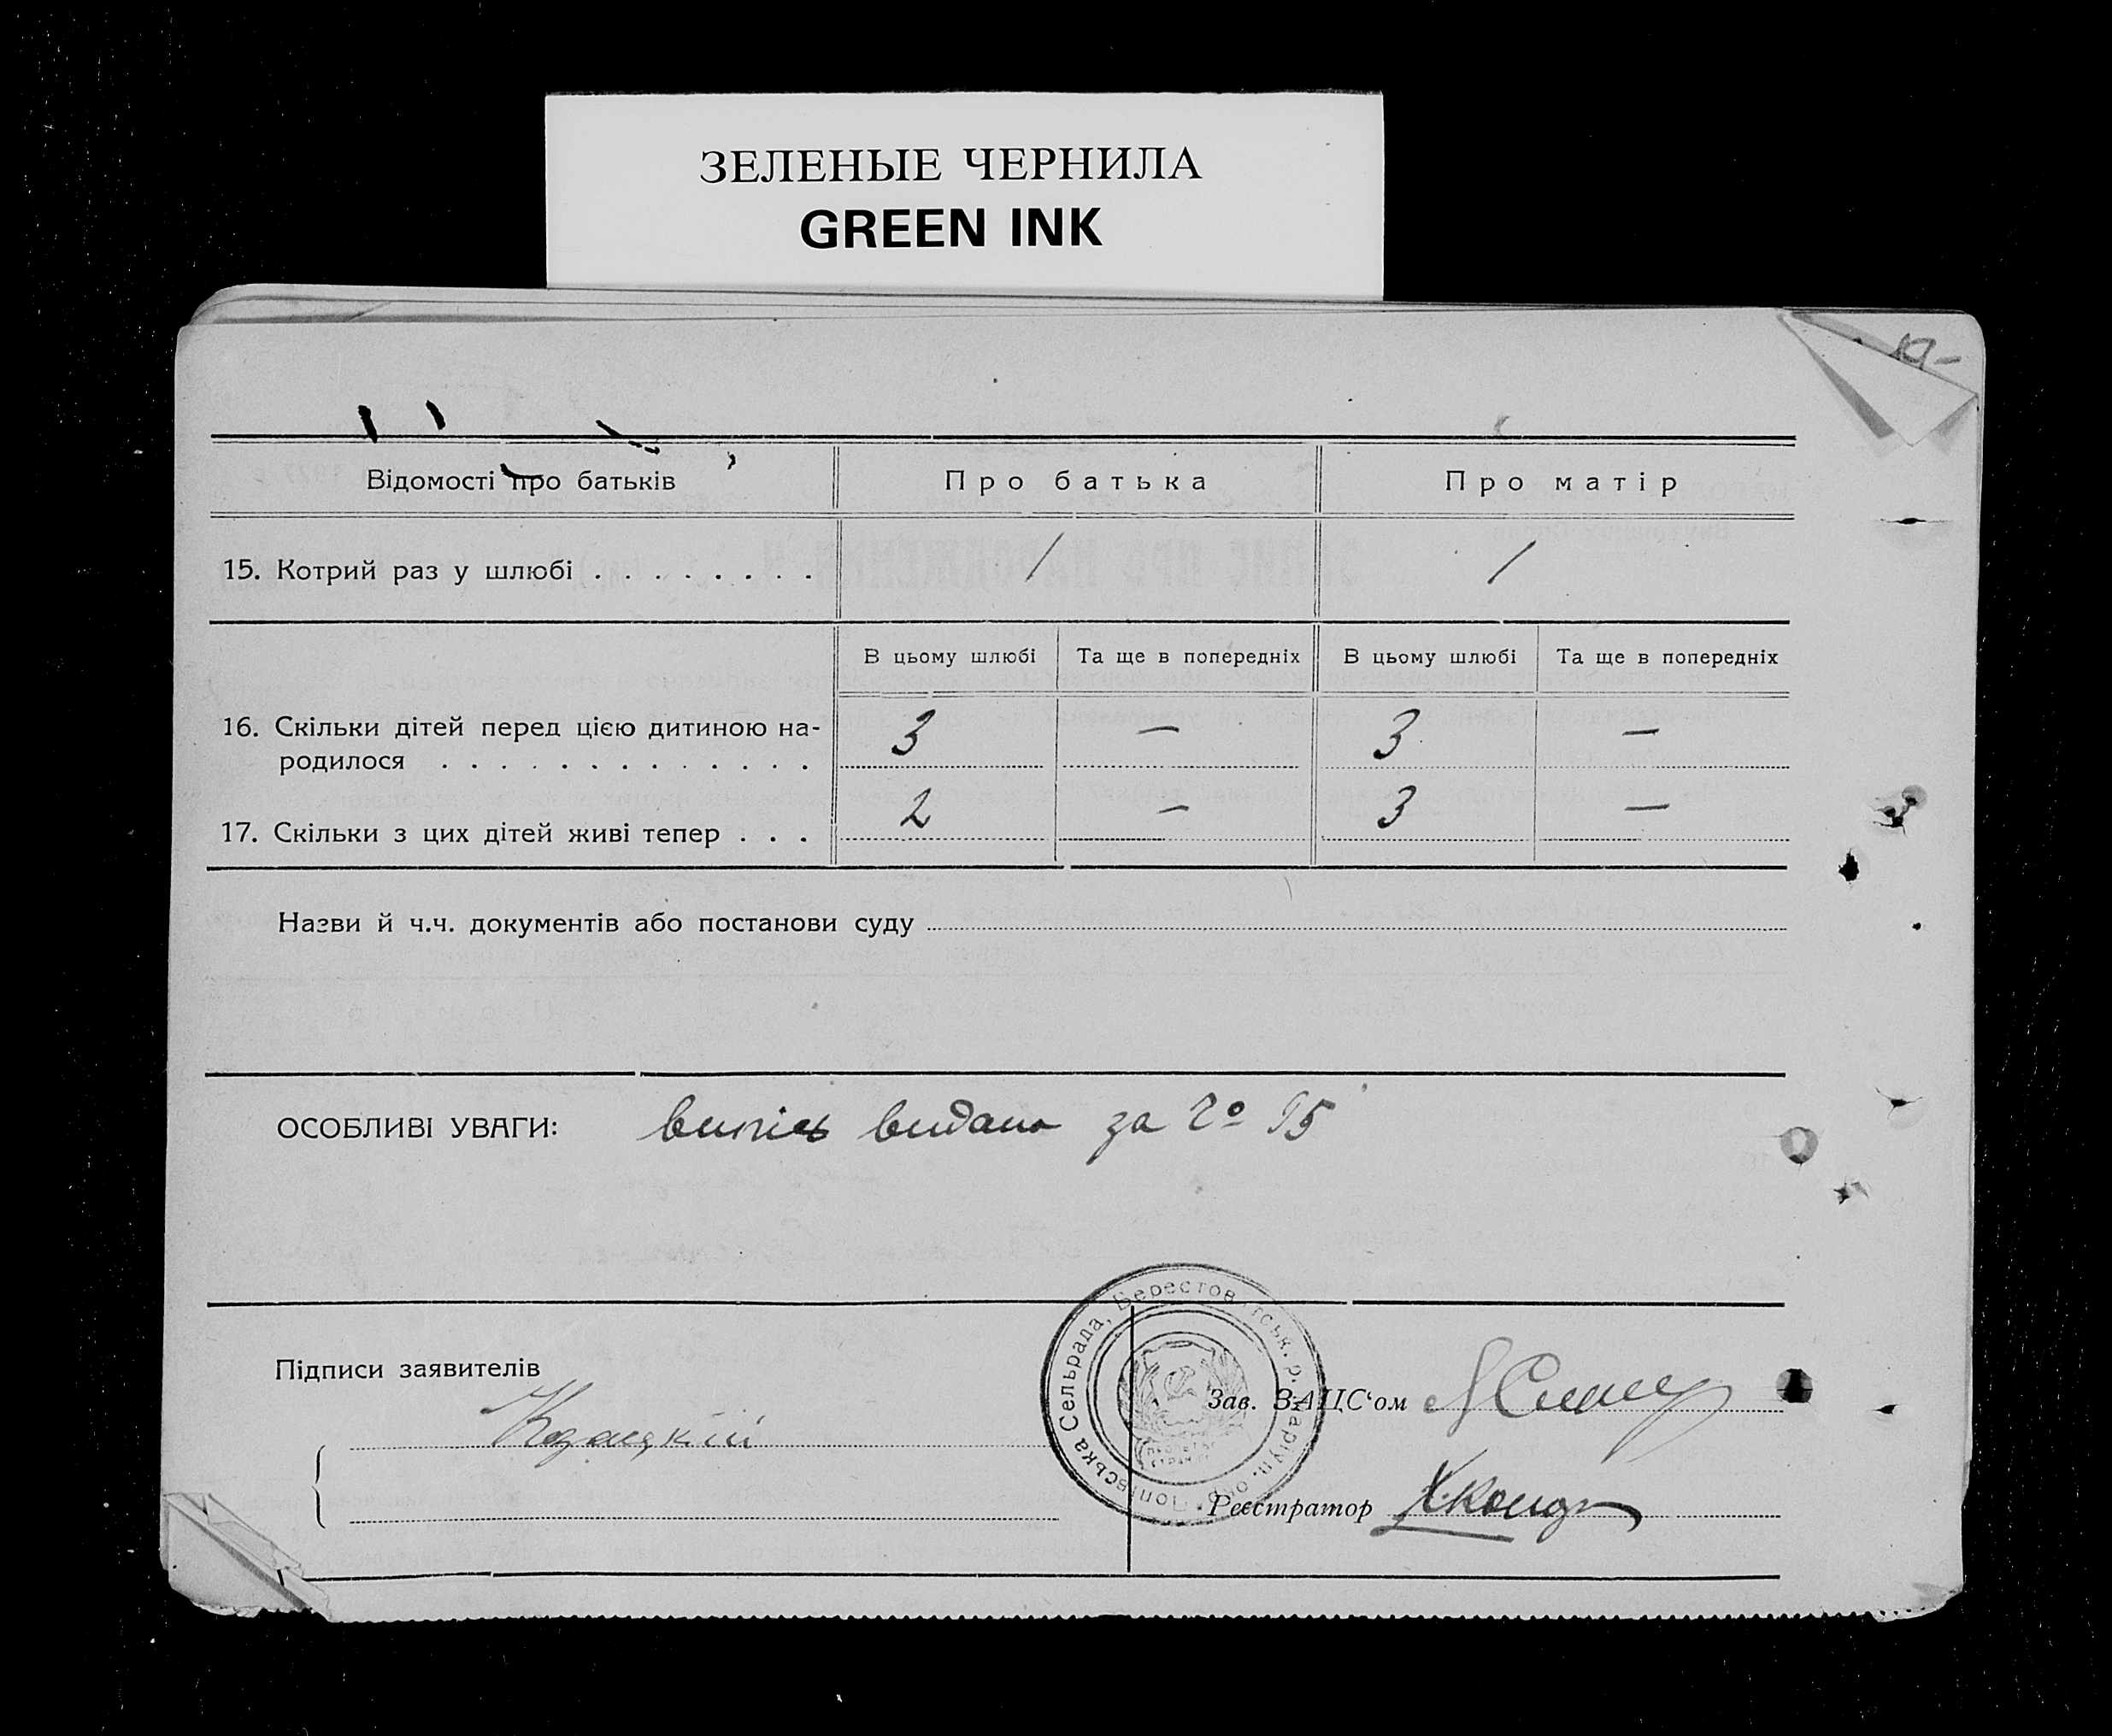 ЗЕЛЕНЫЕ ЧЕРНИЛА
GREEN INK
19-
Відомості про батьків Про батька Про матір
15. Котрий раз у шлюбі . . . . . . . . / /
В цьому шлюбі Та ще в попередніх В цьому шлюбі Та ще в попередніх
16. Скільки дітей перед цією дитиною на-
родилося . . . . . . . . . . . . . 3 — 3 —
17. Скільки з цих дітей живі тепер . . . 2 — 3 —
Назви й ч.ч. документів або постанови суду
ОСОБЛИВІ УВАГИ: випис видано за № 95
Підписи заявителів
Козацкій
Зав. ЗАЦС'ом
Реєстратор
Попівська Сельрада, Берестов р. Маріуп. окр.